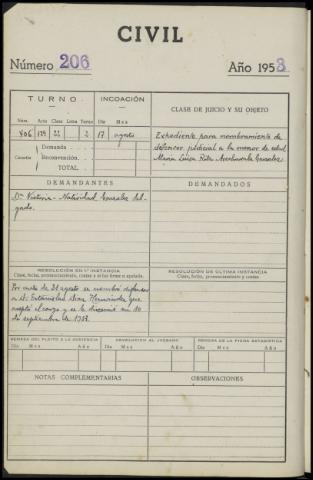 CIVIL
Número 206
Año 1953
TURNO
INCOACIÓN
CLASE DE JUICIO Y SU OBJETO
Núm. Acto Clase Letra Turno Día Mes
406 129 22 2 17 agosto
Expediente para nombramiento de
defensor judicial a la menor de edad
María Luisa Rita González
Cuantía
Demanda
Reconvención
TOTAL
DEMANDANTES
DEMANDADOS
Dª Victoria-Natividad González Sal-
gado.
RESOLUCIÓN EN 1ª INSTANCIA
Clase, fecha, pronunciamiento, costas y si fué firme o apelada.
RESOLUCIÓN DE ÚLTIMA INSTANCIA
Clase, fecha, pronunciamiento y costas
Por auto de 31 agosto se nombró defensor
a D. Estanislao Hernández que
aceptó el cargo y se le discernió en 10
de septiembre de 1953.
REMESA DEL PLEITO A LA AUDIENCIA
DEVOLUCIÓN AL JUZGADO
REMESA DE LA FICHA ESTADÍSTICA
Día Mes Año
Día Mes Año
Día Mes Año
NOTAS COMPLEMENTARIAS
OBSERVACIONES